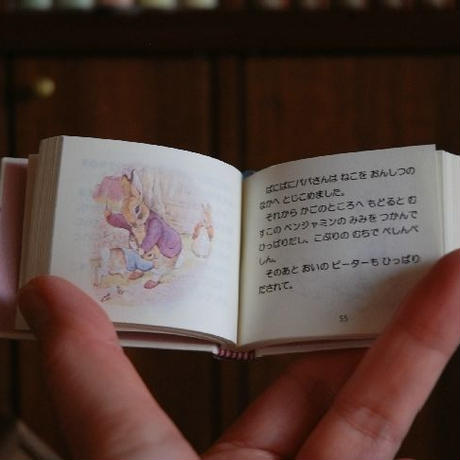 ばにばにパパさんは ねこを おんしつの
なかへ とじこめました。
それから かごのところへ もどると む
すこの ベンジャミンの みみを つかんで
ひっぱりだし、こぶりの むちで ぺしんぺ
しん。
そのあと おいの ピーターも ひっぱり
だされて。
55